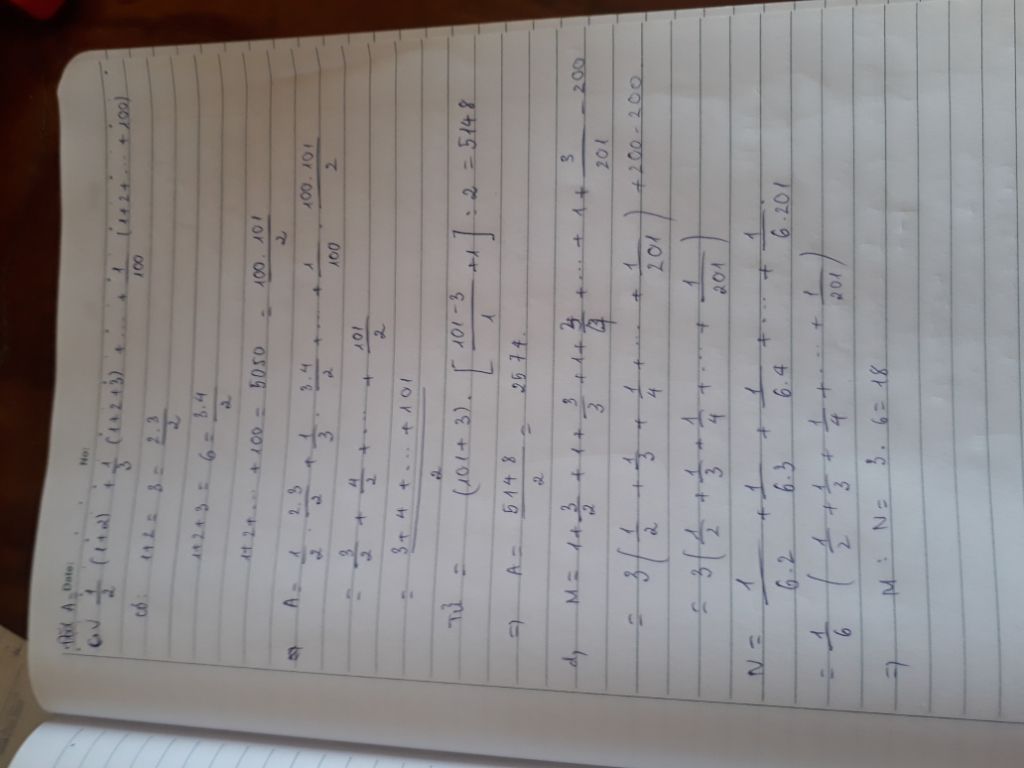 Date: No:
Đặt A =
c, 1/2 (1+2) + 1/3 (1+2+3) + ... + 1/100 (1+2+...+100)
Có: 1+2 = 3 = 2.3/2
1+2+3 = 6 = 3.4/2
1+2+...+100 = 5050 = 100.101/2
⇒ A = 1/2 . 2.3/2 + 1/3 . 3.4/2 + .... + 1/100 . 100.101/2
= 3/2 + 4/2 + .... + 101/2
= (3+4+...+101)/2
Tử = (101+3) . [ (101-3)/1 + 1 ] : 2 = 5148
⇒ A = 5148/2 = 2574.
d, M = 1 + 3/2 + 1 + 3/3 + 1 + 3/4 + ... + 1 + 3/201 - 200
= 3 ( 1/2 + 1/3 + 1/4 + ... + 1/201 ) + 200 - 200
= 3 ( 1/2 + 1/3 + 1/4 + ... + 1/201 )
N = 1/6.2 + 1/6.3 + 1/6.4 + ... + 1/6.201
= 1/6 ( 1/2 + 1/3 + 1/4 + ... + 1/201 )
⇒ M : N = 3 . 6 = 18